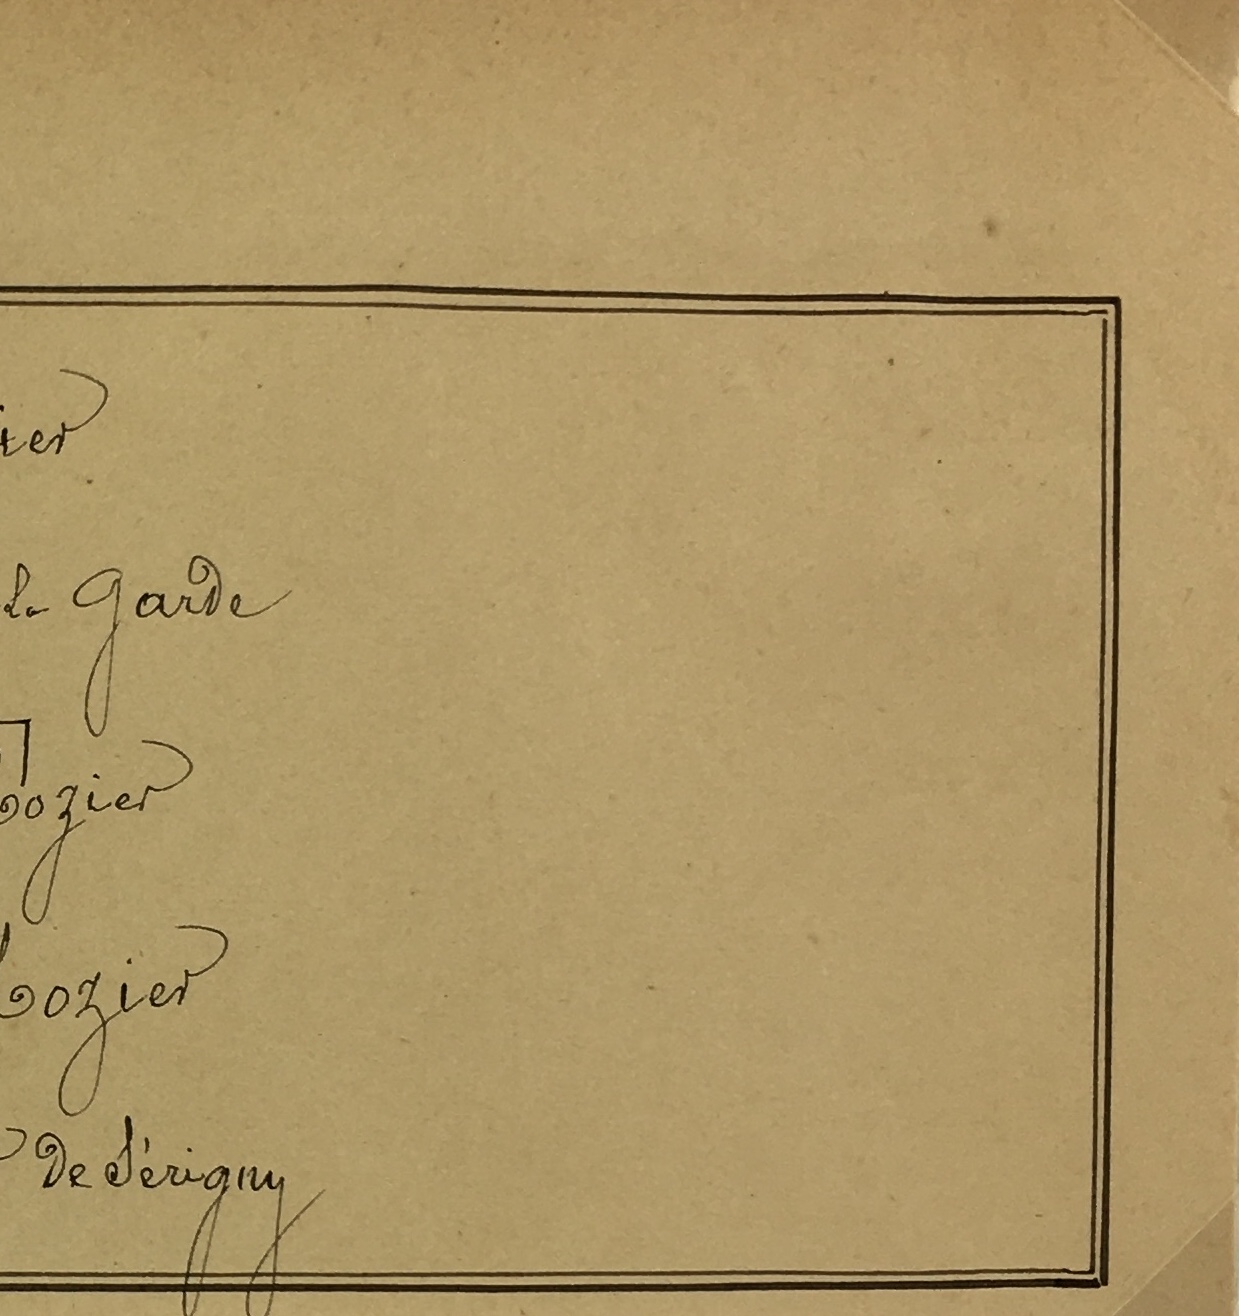 la Garde
ozier
ozier
De Sérigny